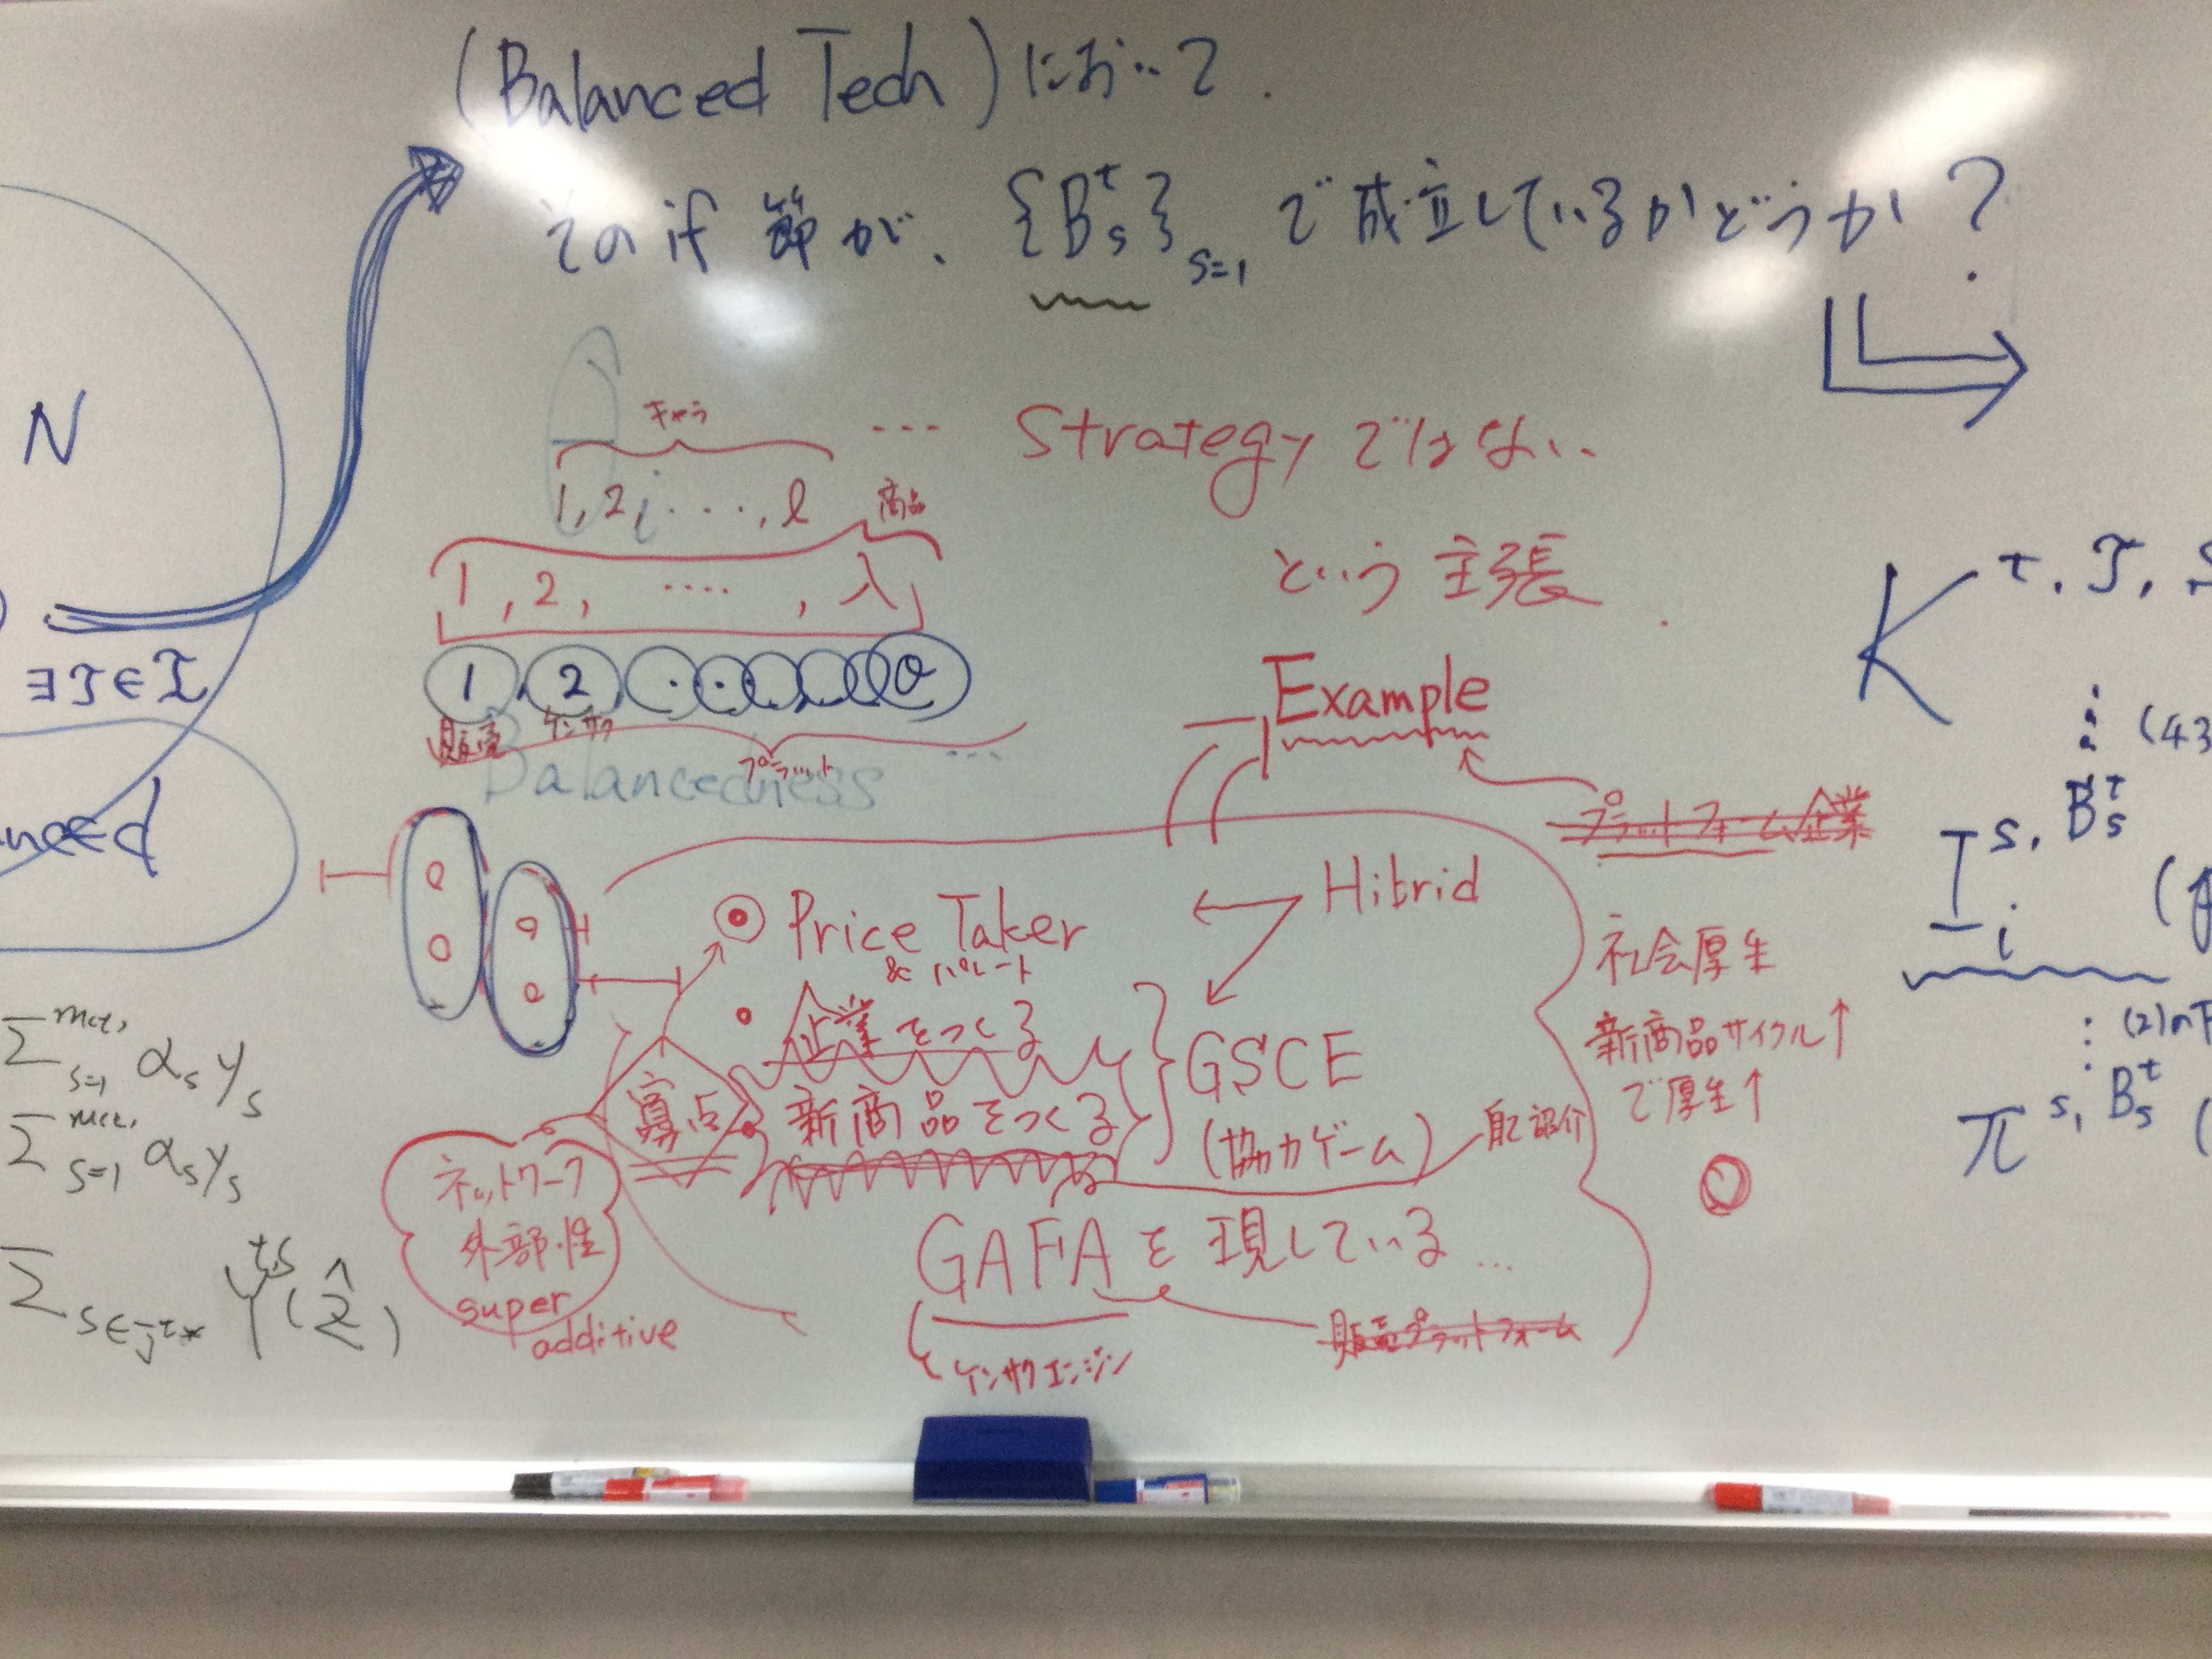 (Balanced Tech) において.
その if 節が、{B^t_s}_{s=1} で成立しているかどうか?
N
キャラ
... Strategy ではない
1, 2, ...., l
商品
という 主張
1, 2, ...., λ
1, 2
∃T∈T
販売
ケンサク
プラット
Balancedness
...
Example
プラットフォーム企業
Hibrid
Price Taker
& パレート
企業をつくる
GSCE
寡占
新商品をつくる
(協力ゲーム)
自己紹介
ネットワーク
外部性
super
additive
GAFA を 現している...
販売プラットフォーム
ケンサクエンジン
社会厚生
新商品サイクル↑
で厚生↑
anced
Σ s=1 α_s y_s
Σ s=1 α_s y_s
Σ s∈J^t* Y^ts(ẑ)
K^t, T,
(43
I_i^s, B^t_s
(2)の
π^s, B^t_s (